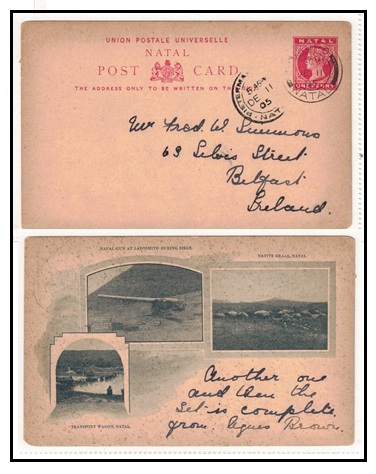 UNION POSTALE UNIVERSELLE
NATAL
POST CARD
THE ADDRESS ONLY TO BE WRITTEN ON
NATAL
ONE PENNY
DE 11
05
NATAL
Mr Fred. W. Simmons
69 Street
Belfast
Ireland.
NAVAL GUN AT LADYSMITH DURING SIEGE.
NATIVE KRAAL, NATAL.
TRANSPORT WAGON, NATAL.
Another one
and then the
Set is complete
from Agnes Brown.